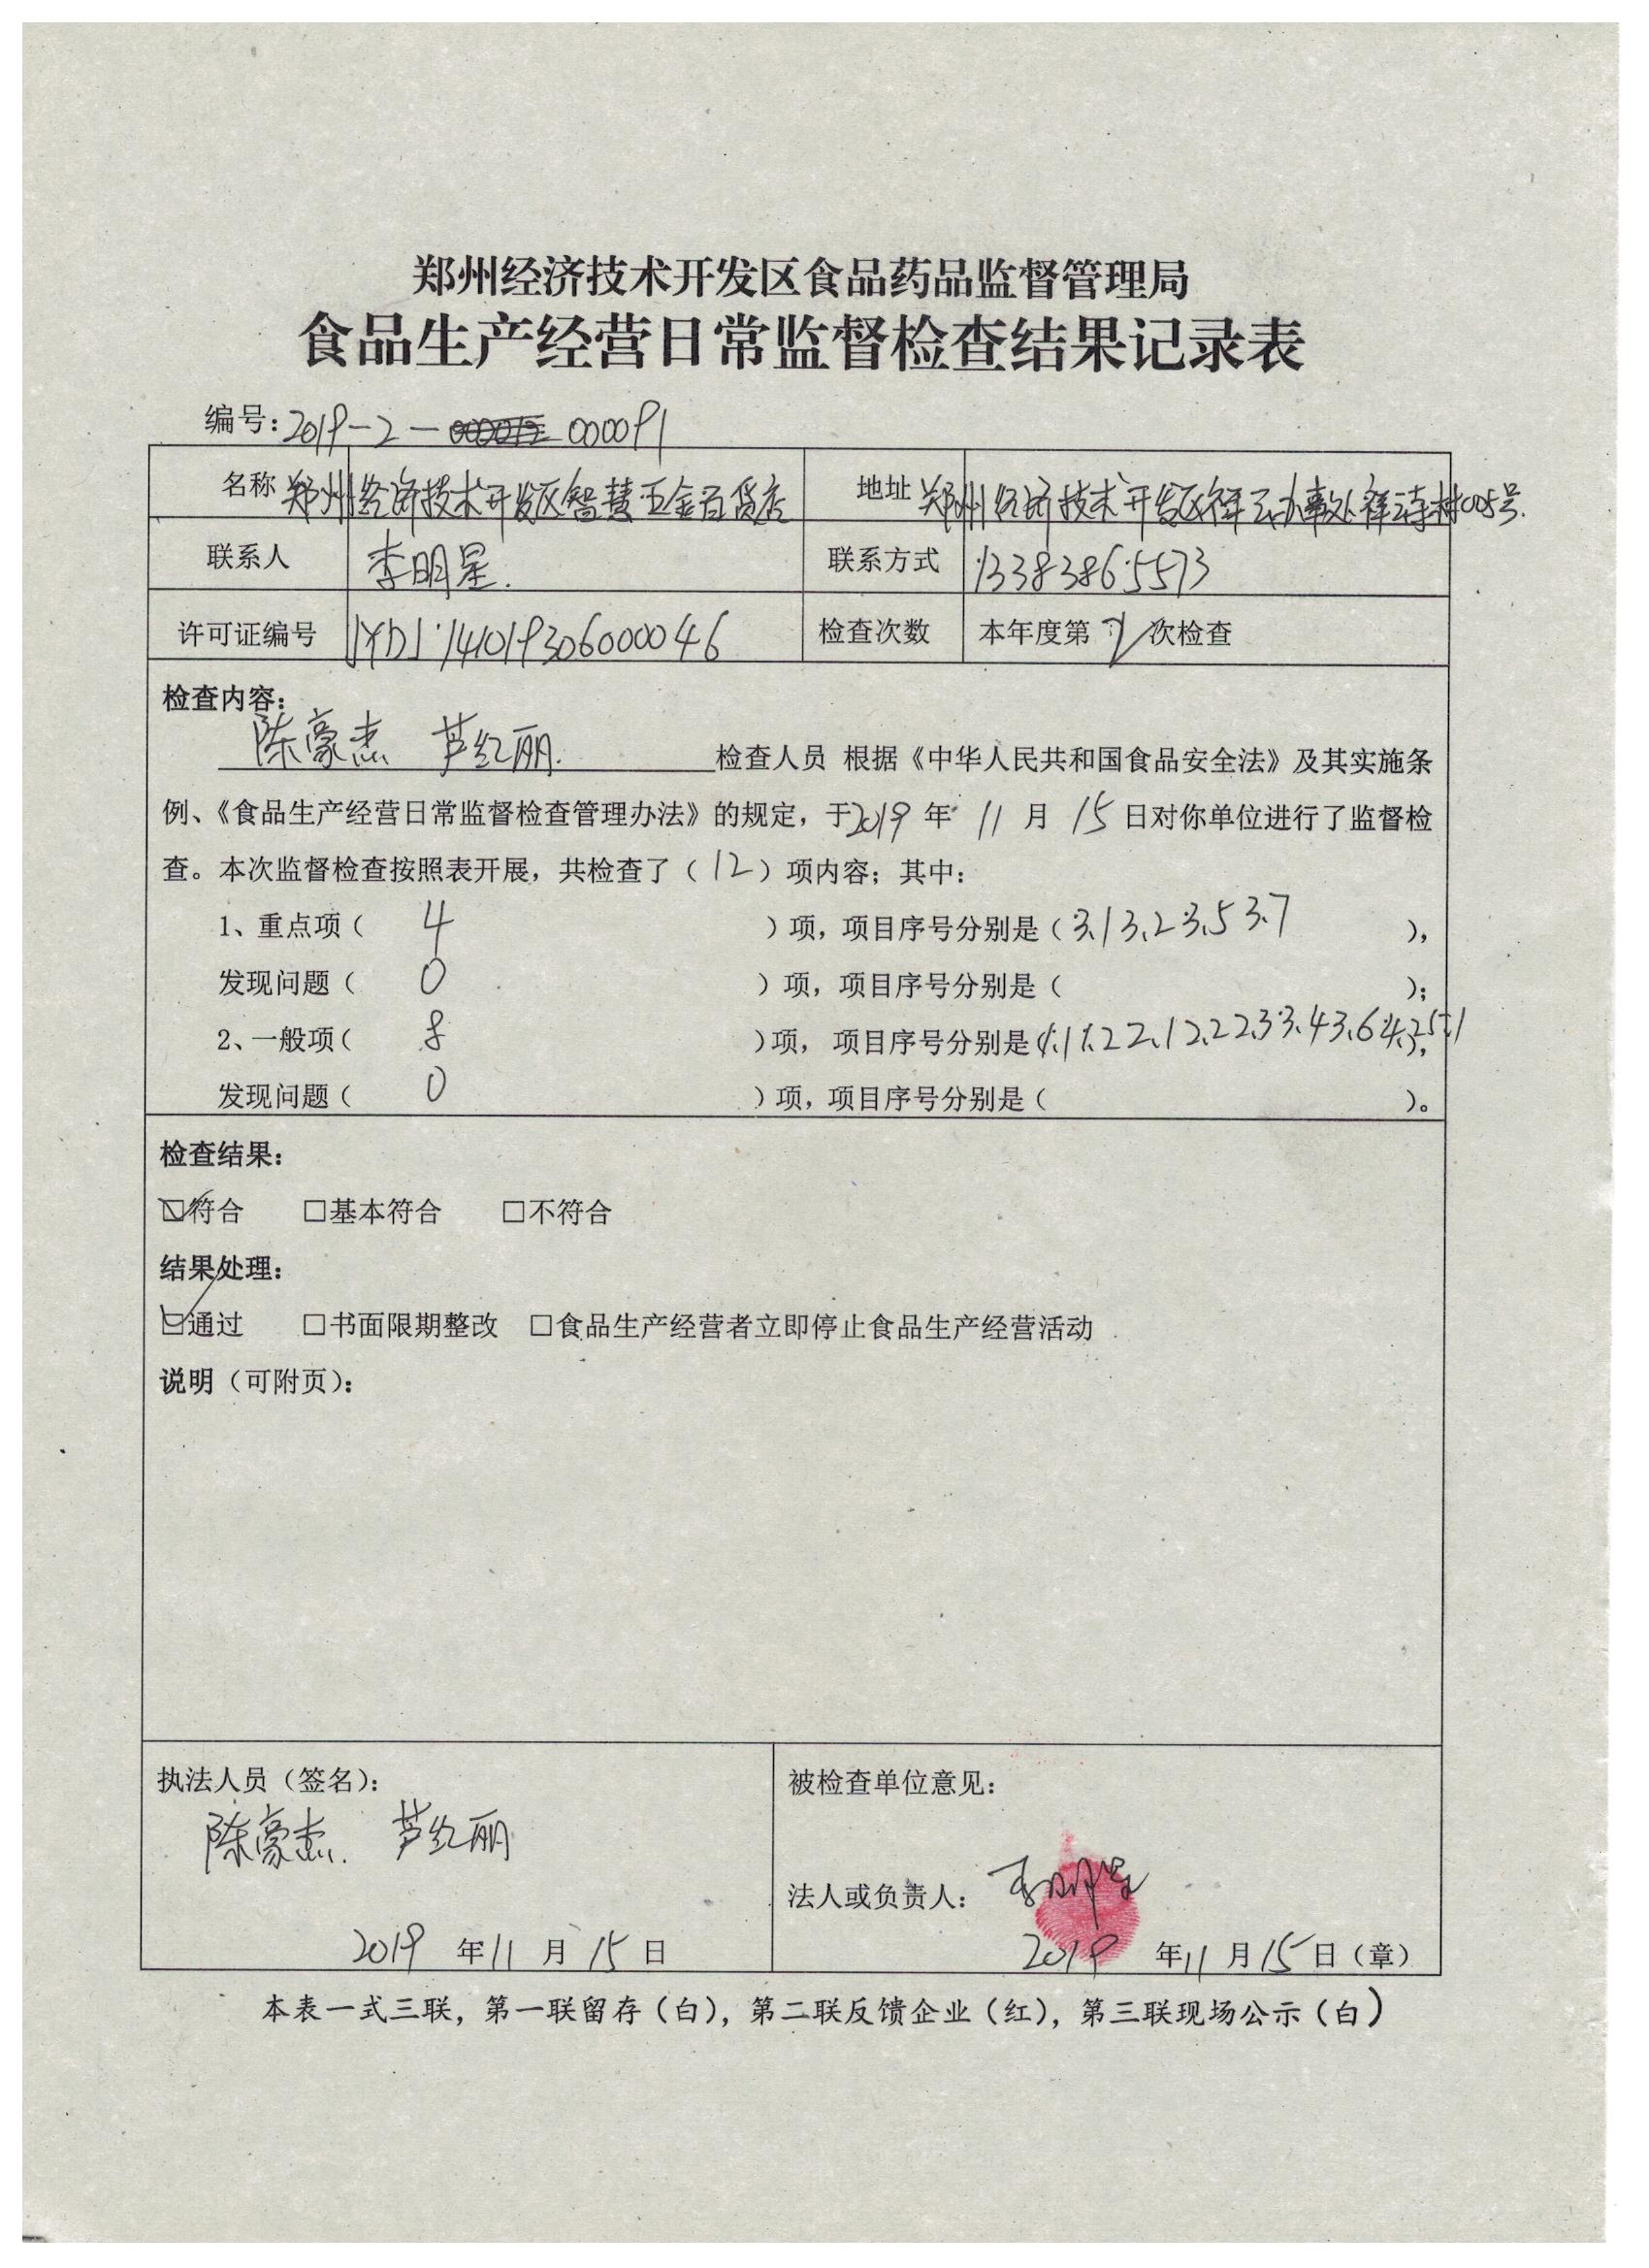 郑州经济技术开发区食品药品监督管理局
食品生产经营日常监督检查结果记录表
编号:2019-2- 000091
名称 郑州经济技术开发区智慧五金百货店 地址 郑州经济技术开发区祥云办事处祥符村005号.
联系人 李明星. 联系方式 13383865573
许可证编号 JYDJ14101930600046 检查次数 本年度第2次检查
检查内容:
陈豪杰 芦红丽. 检查人员 根据《中华人民共和国食品安全法》及其实施条
例、《食品生产经营日常监督检查管理办法》的规定,于2019年11月15日对你单位进行了监督检
查。本次监督检查按照表开展,共检查了(12)项内容;其中:
1、重点项( 4 )项,项目序号分别是(3.1 3.2 3.5 3.7 ),
发现问题( 0 )项,项目序号分别是( );
2、一般项( 8 )项, 项目序号分别是(1.1 1.2 2.1 2.2 2.3 3.4 3.6 4.2 5.1 ),
发现问题( 0 )项,项目序号分别是( )。
检查结果:
☑符合 □基本符合 □不符合
结果处理:
☑通过 □书面限期整改 □食品生产经营者立即停止食品生产经营活动
说明(可附页):
执法人员(签名): 被检查单位意见:
陈豪杰. 芦红丽
法人或负责人: 李明星
2019 年11月15日 2019 年11月15日(章)
本表一式三联,第一联留存(白),第二联反馈企业(红),第三联现场公示(白)